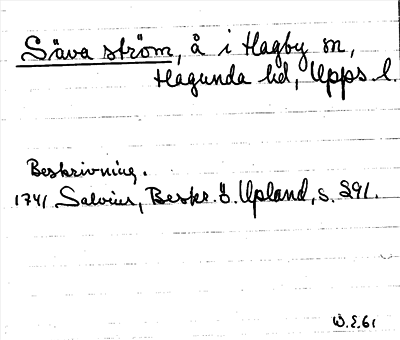 Säva ström, å i Hagby sn,
Hagunda hd, Upps. l.
Beskrivning.
1741 Salvius, Beskr. ö. Upland, s. 291.
W.E. 61